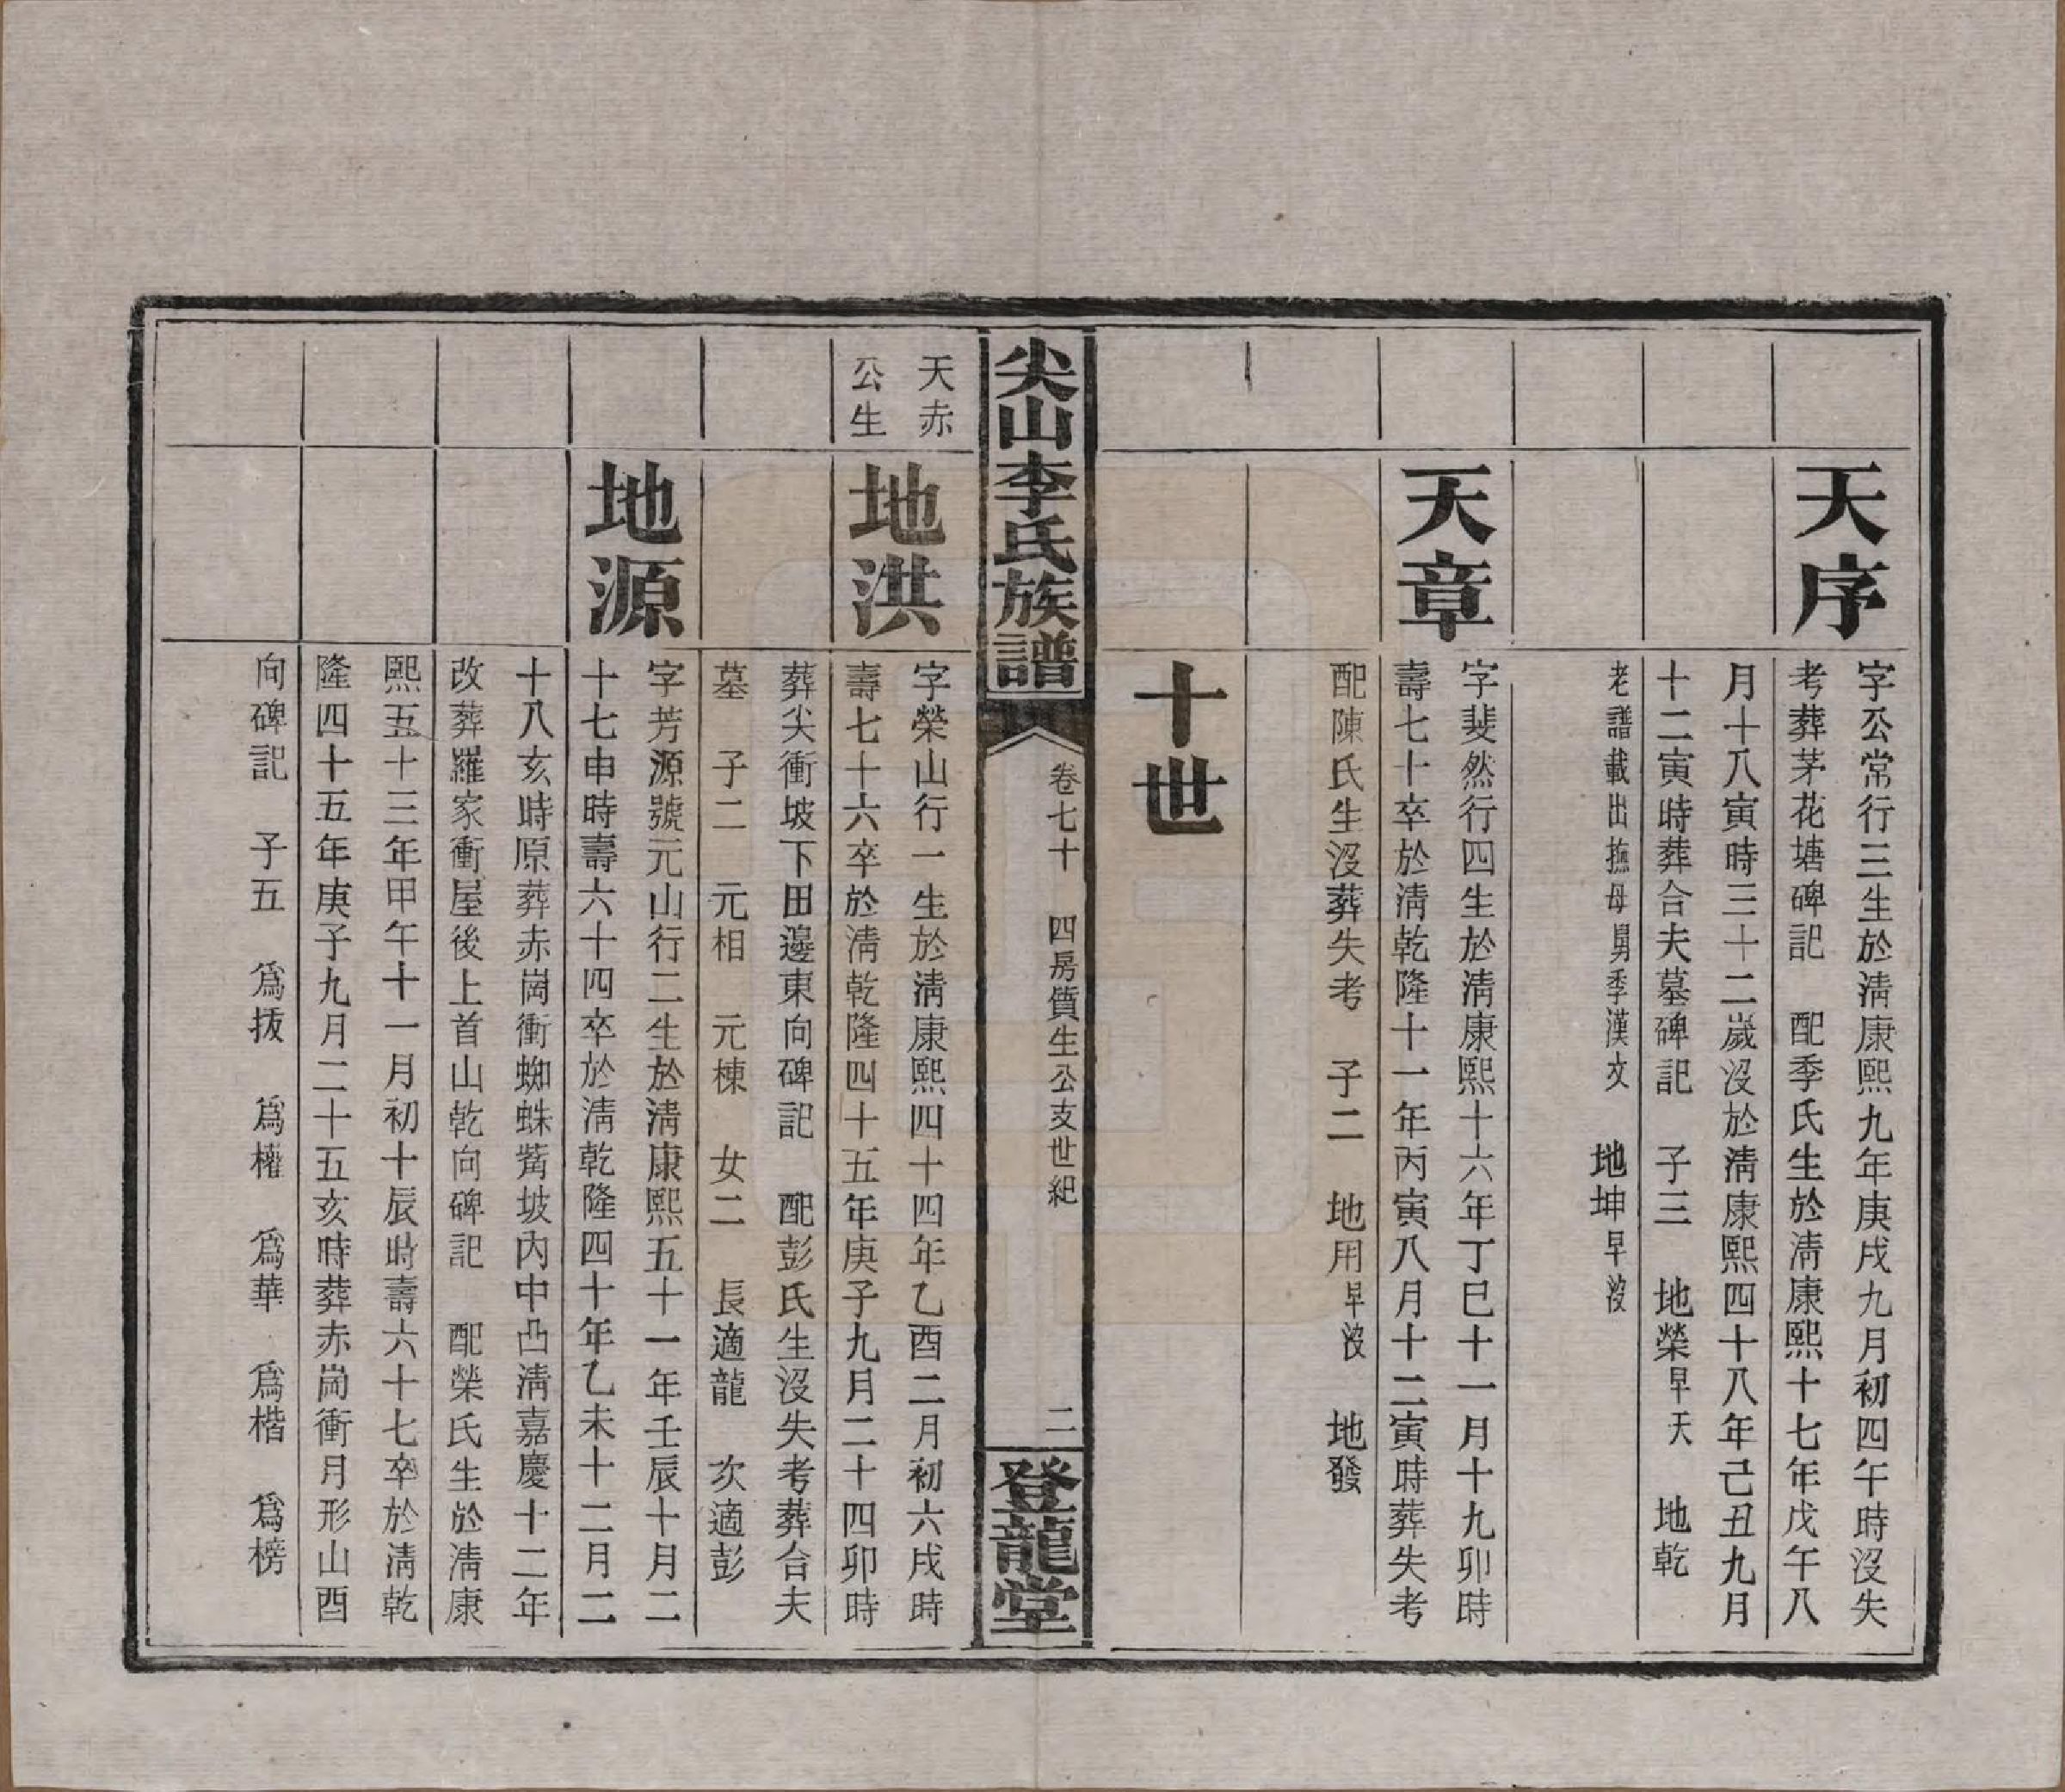 天序
字公常行三生於淸康熙九年庚戌九月初四午時沒失
考葬茅花塘碑記　配季氏生於淸康熙十七年戊午八
月十八寅時三十二歲沒於淸康熙四十八年己丑九月
十二寅時葬合夫墓碑記　子三　地榮早夭　地乾
老譜載出撫母舅季漢文　地坤早沒
天章
字斐然行四生於淸康熙十六年丁巳十一月十九卯時
壽七十卒於淸乾隆十一年丙寅八月十二寅時葬失考
配陳氏生沒葬失考　子二　地用早沒　地發
十世
尖山李氏族譜
卷七十　四房質生公支世紀
二
登龍堂
天赤
公生
地洪
字榮山行一生於淸康熙四十四年乙酉二月初六戌時
壽七十六卒於淸乾隆四十五年庚子九月二十四卯時
葬尖衝坡下田邊東向碑記　配彭氏生沒失考葬合夫
墓　子二　元相　元棟　女二　長適龍　次適彭
地源
字芳源號元山行二生於淸康熙五十一年壬辰十月二
十七申時壽六十四卒於淸乾隆四十年乙未十二月二
十八亥時原葬赤崗衝蜘蛛觜坡內中凸淸嘉慶十二年
改葬羅家衝屋後上首山乾向碑記　配榮氏生於淸康
熙五十三年甲午十一月初十辰時壽六十七卒於淸乾
隆四十五年庚子九月二十五亥時葬赤崗衝月形山酉
向碑記　子五　爲拔　爲權　爲華　爲楷　爲榜